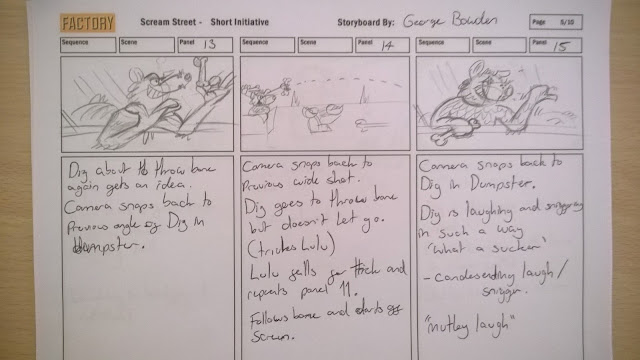 FACTORY
Scream Street - Short Initiative
Storyboard By: George Bowden
Page 5/10
Sequence Scene Panel 13
Sequence Scene Panel 14
Sequence Scene Panel 15
Dig about to throw bone
again gets an idea.
Camera snaps back to
Previous angle of Dig in
dumpster.
Camera snaps back to
Previous wide shot.
Dig goes to throw bone
but doesn't let go.
(tricks Lulu)
Lulu falls for trick and
repeats panel 11.
Follows bone and darts off
Screen.
Camera snaps back to
Dig in Dumpster.
Dig is laughing and sniggering
in such a way
'what a sucker'
- Condesending laugh /
snigger.
"Mutley laugh"